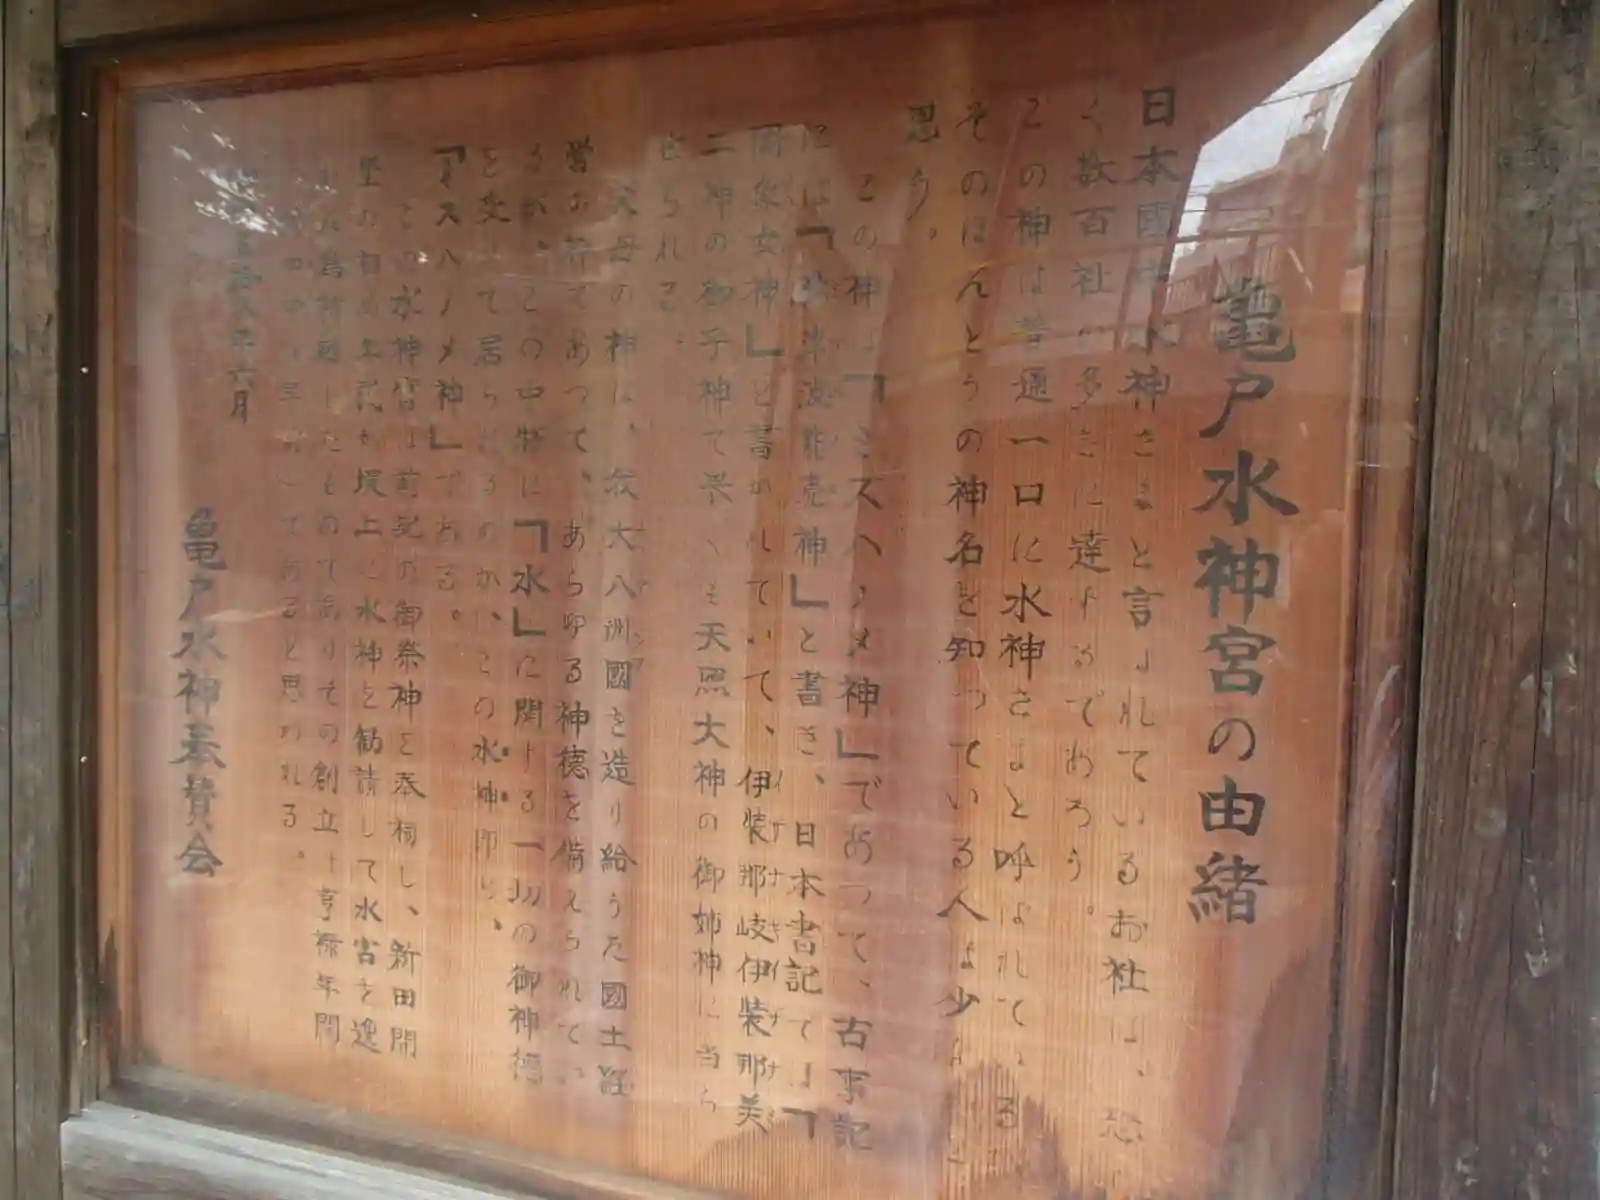 亀戸水神宮の由緒
日本國中水神さまと言われているお社は、恐
く数百社の多きに達するであろう。
この神は普通一口に水神さまと呼ばれている
そのほんとうの神名を知っている人は少ないと
思う。
この神は「ミズハノメ神」であって、古事記
には「弥津波能売神」と書き、日本書記では「
罔象女神」と書かれていて、伊装那岐伊装那美
二神の御子神で畏くも天照大神の御姉神に当ら
せられる。
父母の神は、我大八洲國を造り給うた國土経
営の神であつて、あらゆる神徳を備えられてい
るが、この中特に「水」に関する一切の御神徳
を受して居られるのが、この水神即ち、
「ミズハノメ神」である。
この水神宮は前記の御祭神を奉祠し、新田開
墾の 堤上に水神を勧請して水害を逸
れん為祈願したものでありその創立は亨禄年間
であると思われる。
年六月
亀戸水神奉賛会